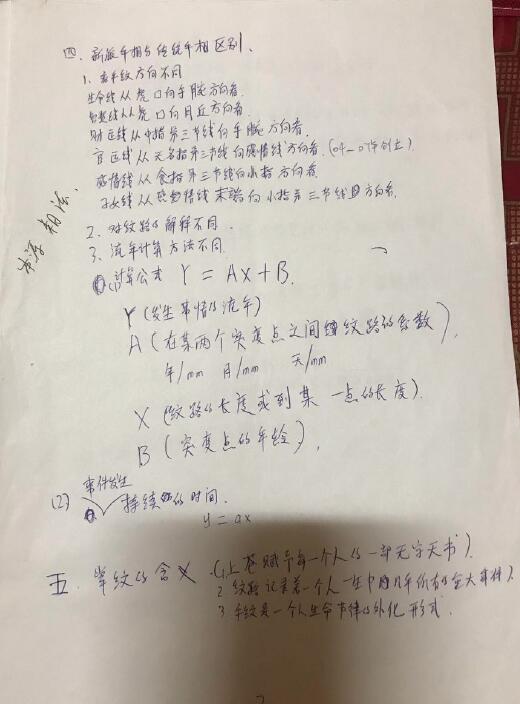 四、新派手相与传统手相区别、
1、看手纹方向不同
生命线从虎口向手腕方向看.
智慧线从虎口向月丘方向看.
财运线从中指第三节线向手腕方向看.
官运线从无名指第三节线向感情线方向看.
感情线从食指第三节线向小指方向看
子女线从感情线末端向小指第三节线方向看.
2、对纹路的解释不同.
3、流年计算方法不同.
(1)计算公式 Y = AX + B.
Y (发生事情的流年)
A (在某两个突变点之间纹路的系数),
年/mm 月/mm 天/mm
X (纹路的长度或到某一点的长度).
B (突变点的年龄),
事件发生
(2) 持续的时间.
y = ax
五、掌纹的含义 (1、上苍赋予每一个人的一部无字天书).
2、纹路记录着一个人一生中所有的重大事件).
3、手纹是一个人生命节律的外化形式.
相法